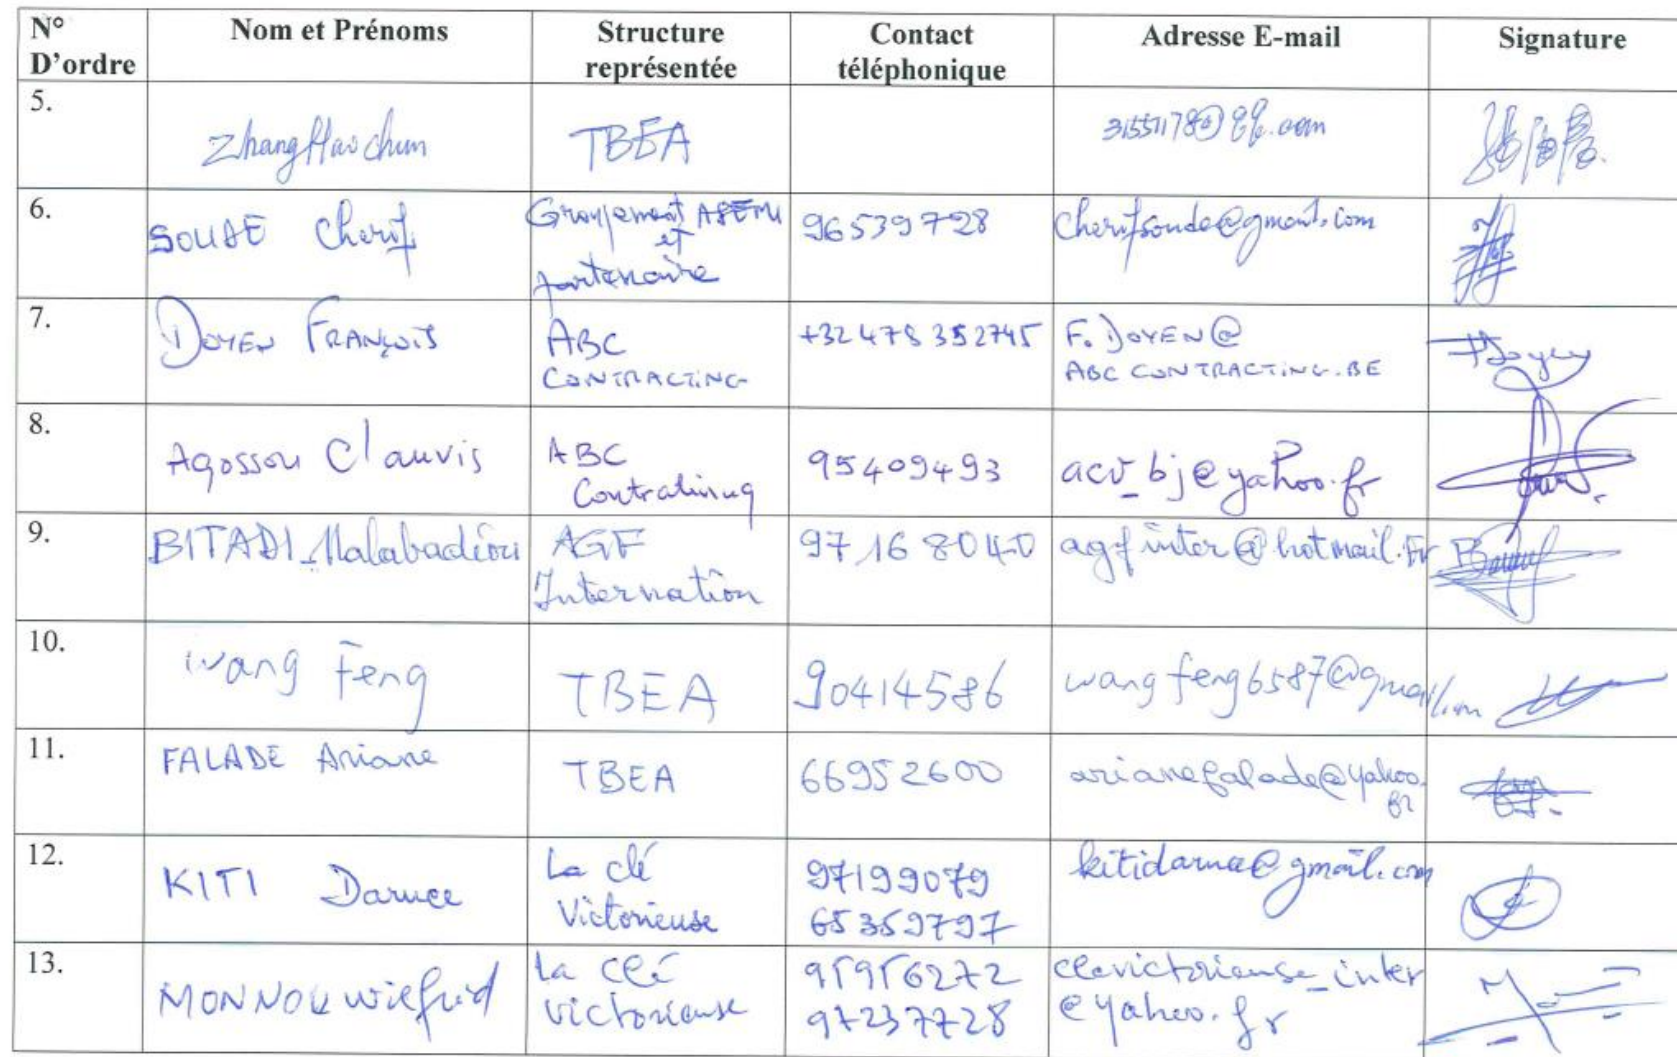 N° D'ordre Nom et Prénoms Structure représentée Contact téléphonique Adresse E-mail Signature
5. Zhang Haochun TBEA 31551178@qq.com
6. SOUDE Cherif Groupement ASEMI et partenaire 96539728 cherifsoude@gmail.com
7. DOYEN FRANÇOIS ABC CONTRACTING +32 478 352745 F.DOYEN@ ABCCONTRACTING.BE
8. Agossou Clauvis ABC Contrating 95409493 acv_bj@yahoo.fr
9. BITADI Malabadéou AGF Internation 97 16 80 40 agfinter@hotmail.Fr
10. wang Feng TBEA 90414586 wangfeng6587@gmail.com
11. FALADE Ariane TBEA 66952600 arianefalade@yahoo.fr
12. KITI Daruce La clé Victorieuse 97199079 65359797 kitidaruce@gmail.com
13. MONNOU Wilfrid La clé victorieuse 95956272 97237728 clevictorieuse_inter @yahoo.fr